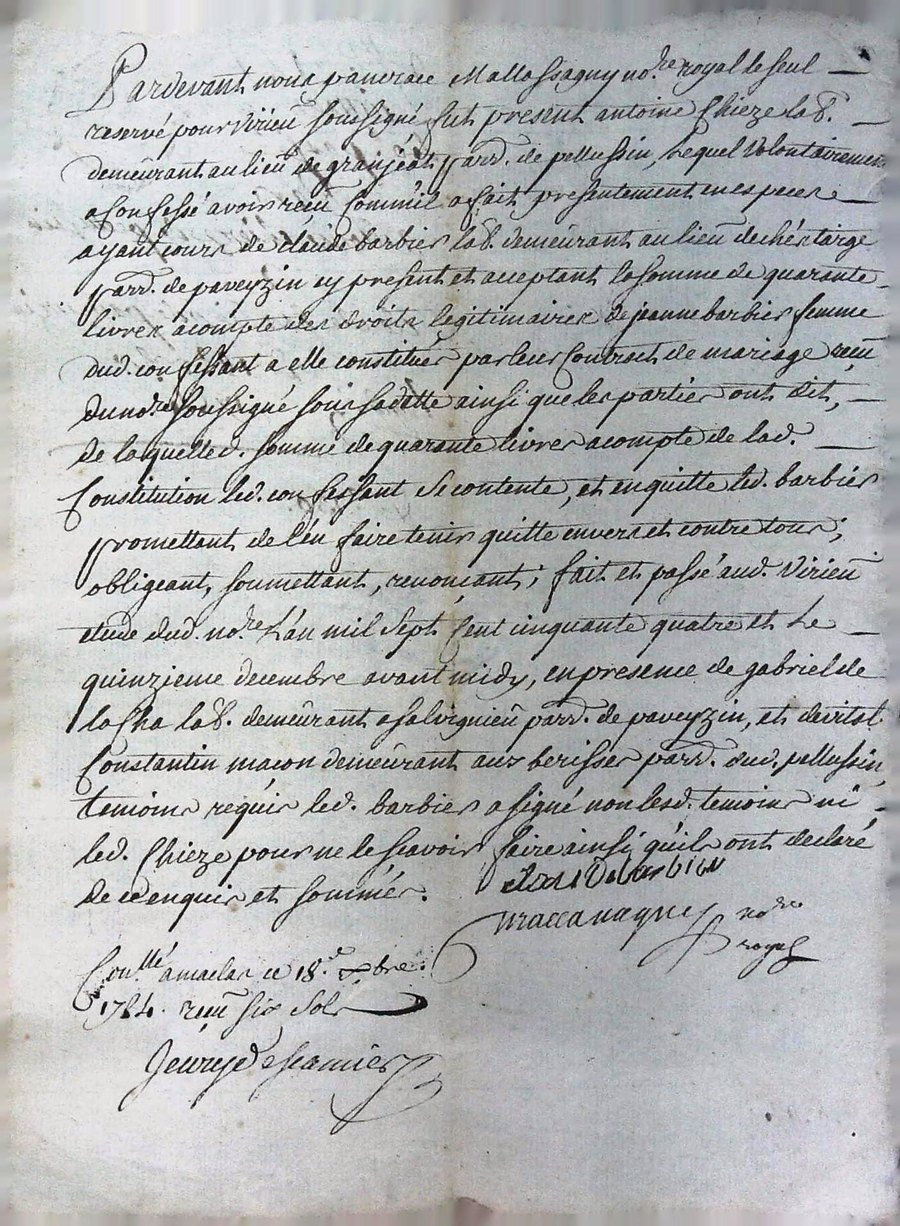 Pardevant nous pancrace Massaguy no.re royal le seul
reservé pour virieu soussigné fut present antoine Chieze lab.
demeurant au lieu de granjeat parr. de pellussin, Lequel Volontairement
a Confessé avoir recu Comm'il a fait presentement en especes
ayant cours de claude barbier lab. demeurant au lieu de
parr. de paveyzin cy present et acceptant la somme de quarante
livres acompte des droits legitimaires de jeanne barbier femme
dud. confessant a elle constitués par leur Contract de mariage recu
du no.re soussigné sous sa datte ainsi que les parties ont dit,
de laquelle d. somme de quarante livres acompte de lad.
Constitution led. confessant se contente, et en quitte led. barbier
promettant de l'en faire tenir quitte envers et contre tous;
obligeant, soumettant, renoncant; fait et passé aud. Virieu
etude dud. no.re L'an mil sept Cent cinquante quatre et Le
quinzieme decembre avant midy, en presence de gabriel de
la Cha lab. demeurant a salvignieu parr. de paveyzin, et de vital
Constantin macon demeurant aux berisses parr. dud. pellussin,
temoins requis led. barbier a signé non lesd. temoins ni
led. Chieze pour ne le scavoir faire ainsi qu'ils ont declaré
de ce enquis et sommés.
no.re
royal
Con.llé a maclas ce 18.e xbre.
1754. recu six sols